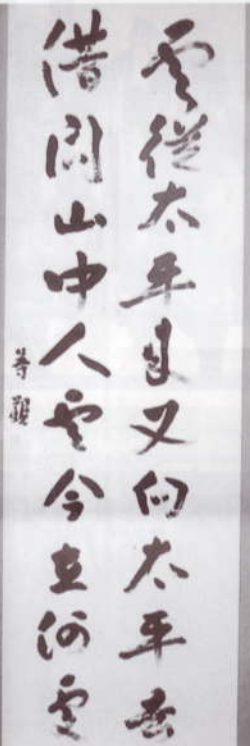 雲從太平來又向太平去
借問山中人雲今在何處